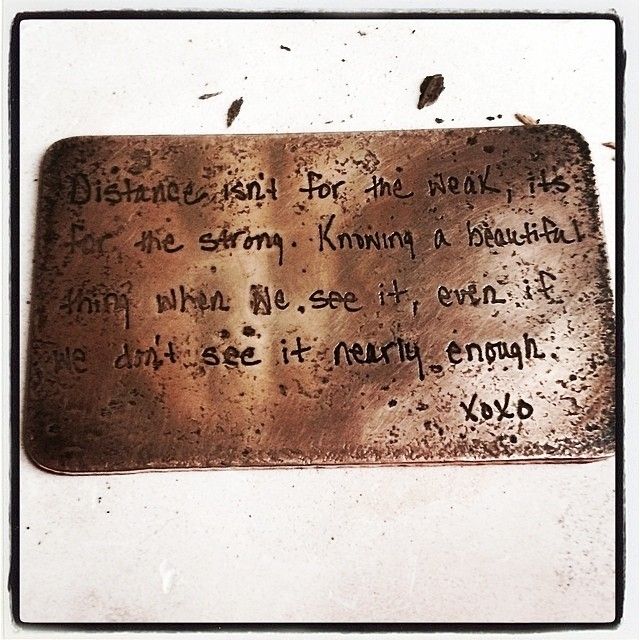 Distance isn't for the weak, its
for the strong. Knowing a beautiful
thing when we see it, even if
we don't see it nearly enough.
xoxo